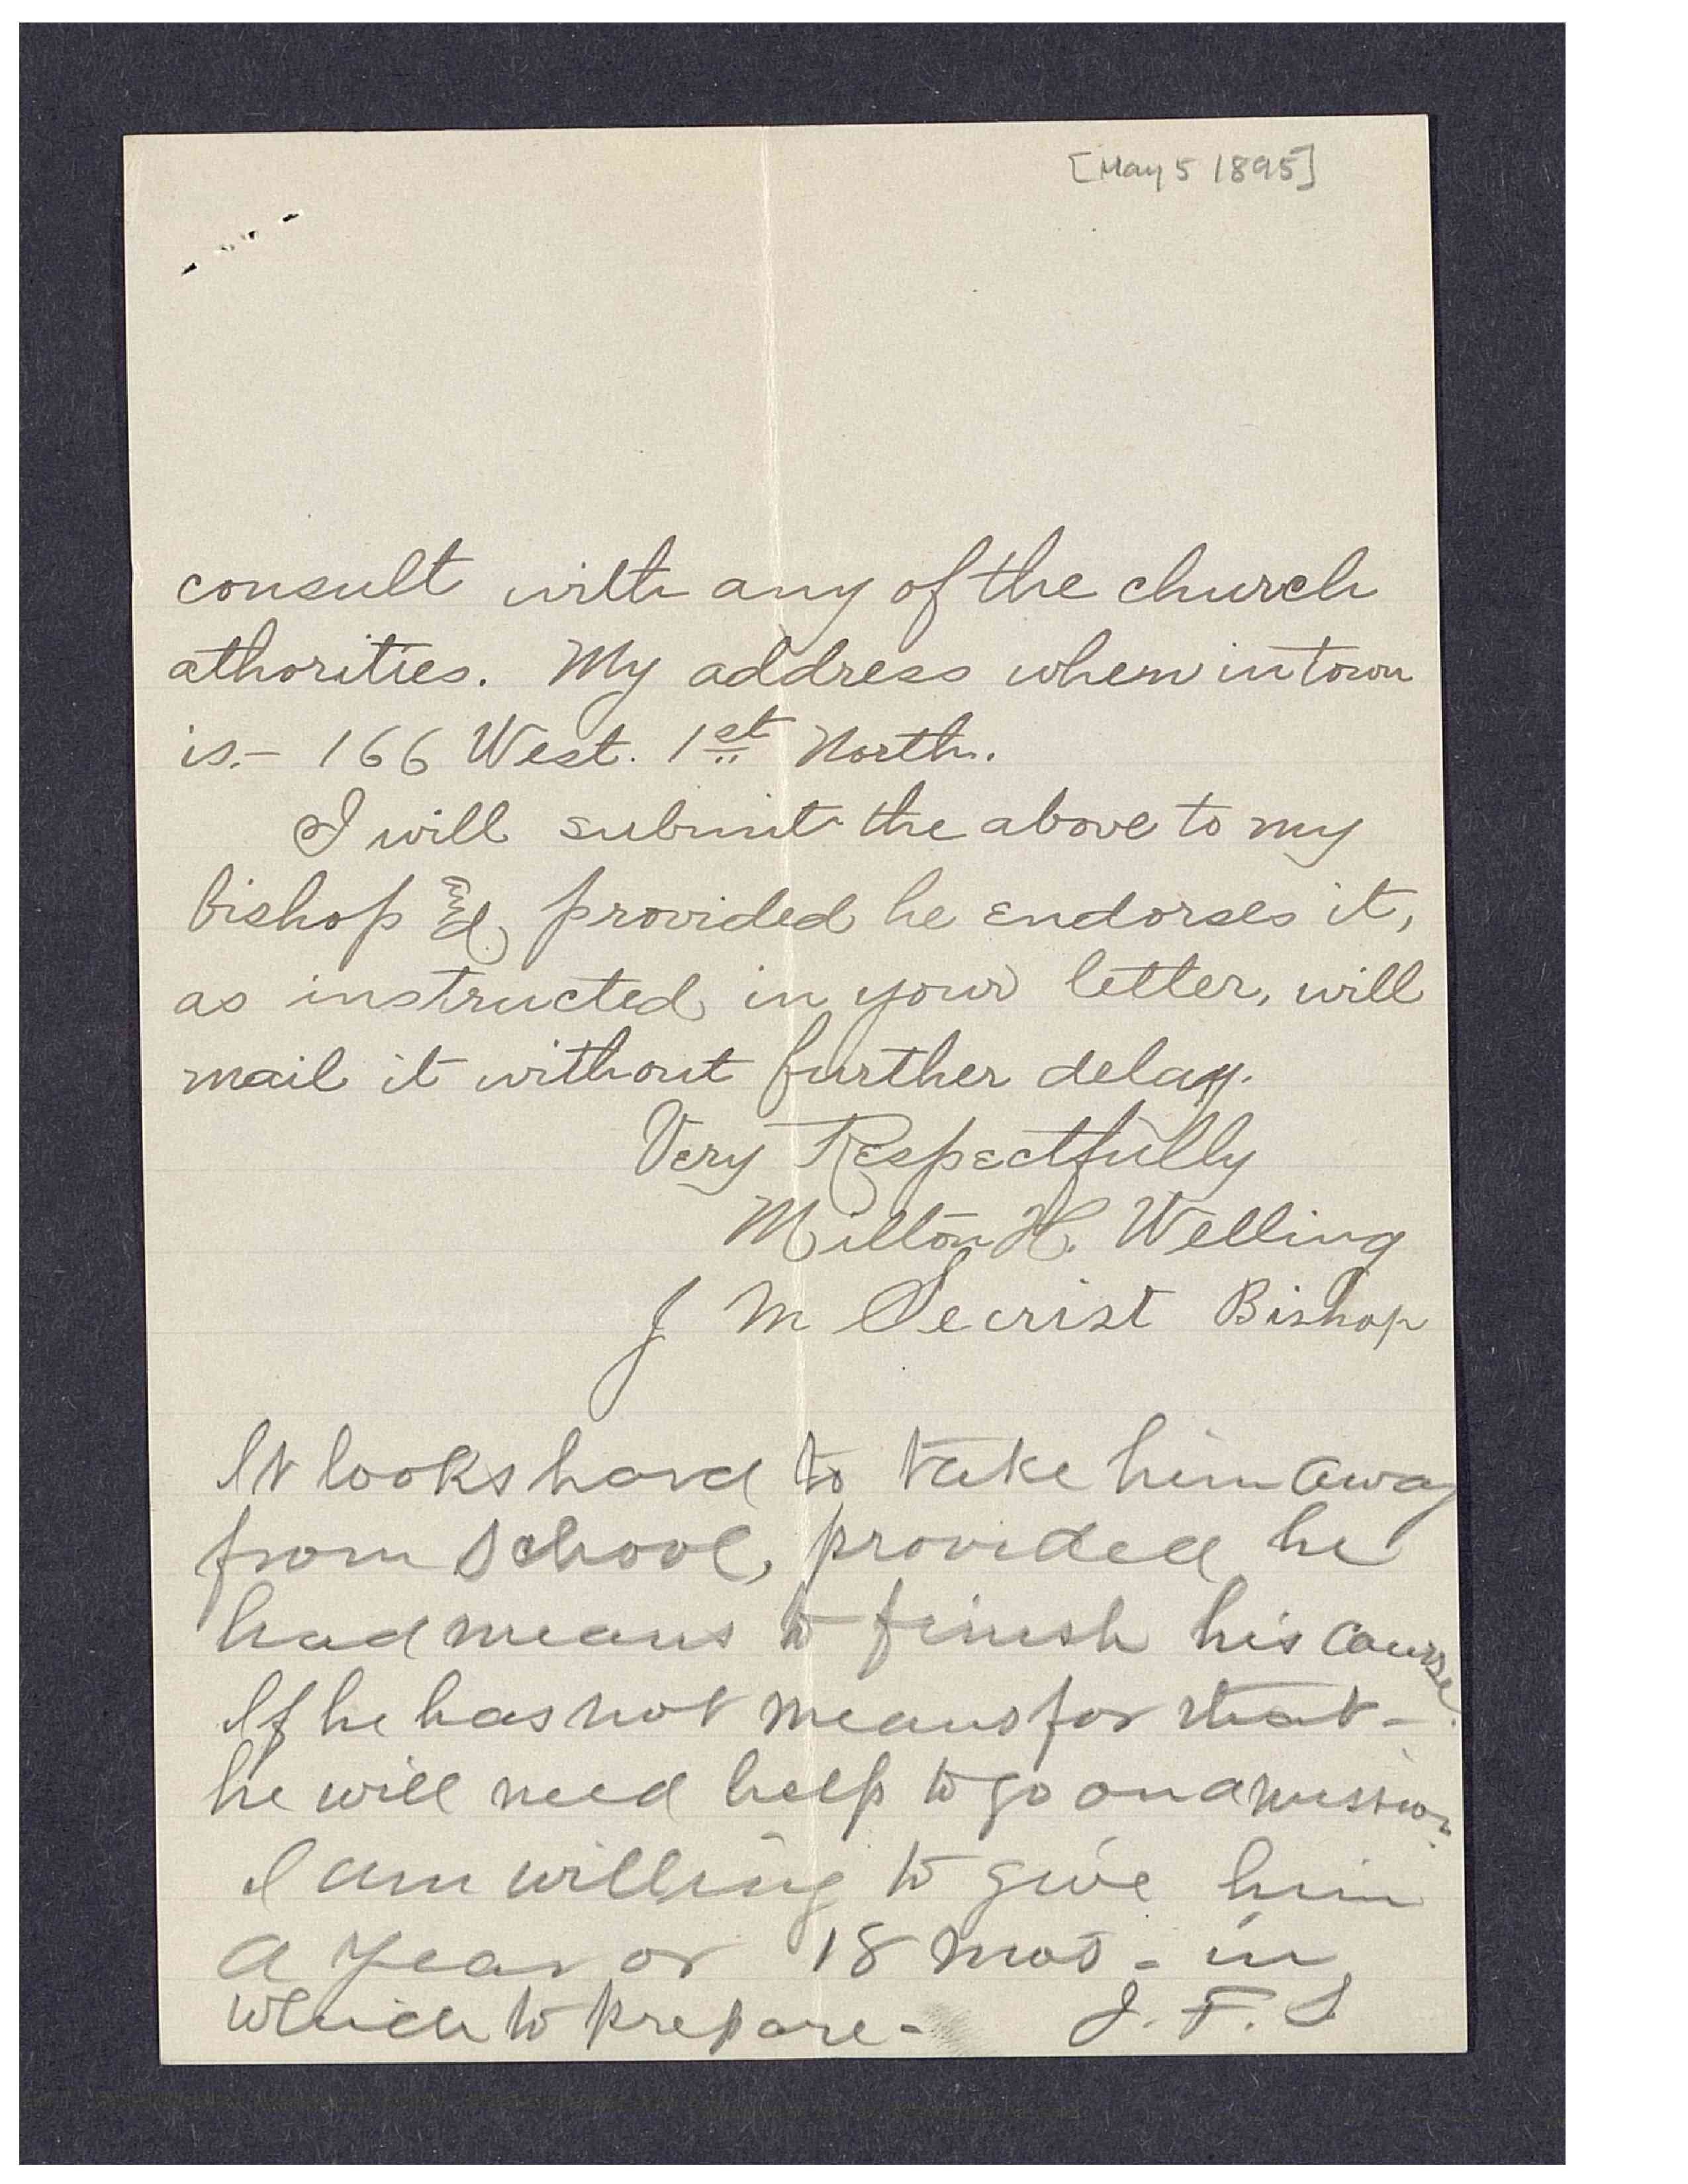 [May 5 1895]
consult with any of the church
athorities. My address when in town
is.- 166 West. 1st North.
I will submit the above to my
bishop & provided he endorses it,
as instructed in your letter, will
mail it without further delay.
Very Respectfully
Milton H. Welling
J M Secrist Bishop
It looks hard to take him away
from school, provided he
had means to finish his course.
If he has not means for that -
he will need help to go on a mission.
I am willing to give him
a year or 18 mos - in
which to prepare - J. F. S.